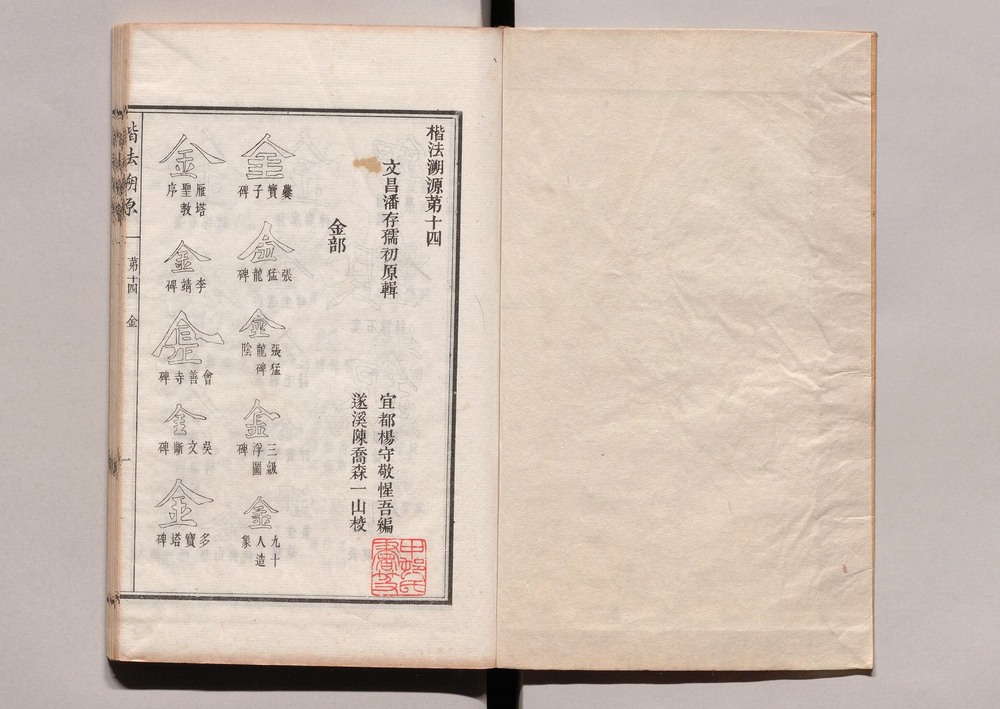 楷法溯源第十四
文昌潘存孺初原輯
宜都楊守敬惺吾編
遂溪陳喬森一山校
金部
金
爨寶子碑
金
張猛龍碑
金
張猛龍碑陰
金
三級浮圖
金
九十人造象
金
雁塔聖教序
金
李靖碑
金
會善寺碑
金
吳文斷碑
金
多寶塔碑
楷法溯原
第十四
金
一